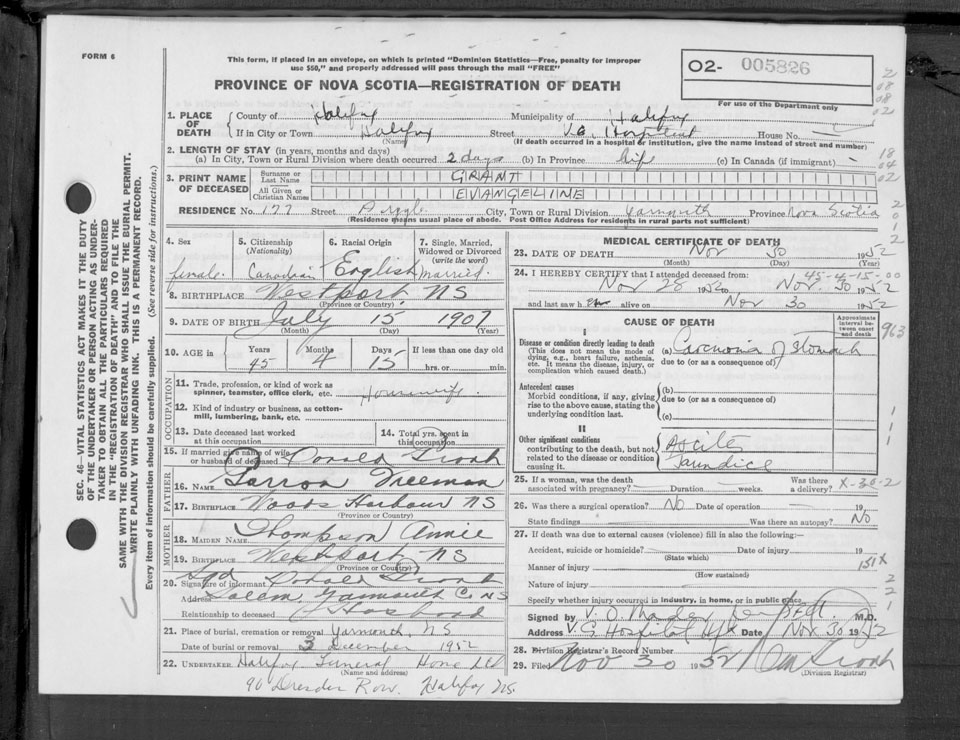 FORM 6
This form, if placed in an envelope, on which is printed "Dominion Statistics—Free, penalty for improper
use $50," and properly addressed will pass through the mail "FREE"
PROVINCE OF NOVA SCOTIA—REGISTRATION OF DEATH
O2- 005826
For use of the Department only
1. PLACE OF DEATH
County of Halifax Municipality of Halifax
If in City or Town Halifax Street V.G. Hospital House No.
(Name) (If death occurred in a hospital or institution, give the name instead of street and number)
2. LENGTH OF STAY (in years, months and days)
(a) In City, Town or Rural Division where death occurred 2 days (b) In Province life (c) In Canada (if immigrant) -
3. PRINT NAME OF DECEASED
Surname or Last Name GRANT
All Given or Christian Names EVANGELINE
RESIDENCE No. 177 Street City, Town or Rural Division Yarmouth Province Nova Scotia
(Residence means usual place of abode. Post Office Address for residents in rural parts not sufficient)
4. Sex
female
5. Citizenship (Nationality)
Canadian
6. Racial Origin
English
7. Single, Married, Widowed or Divorced (write the word)
married.
8. BIRTHPLACE Westport, NS
(Province or Country)
9. DATE OF BIRTH July 15 1907
(Month) (Day) (Year)
10. AGE in Years Months Days If less than one day old
45 4 15 hrs. or min.
OCCUPATION
11. Trade, profession, or kind of work as spinner, teamster, office clerk, etc. Housewife
12. Kind of industry or business, as cotton-mill, lumbering, bank, etc.
13. Date deceased last worked at this occupation
14. Total yrs. spent in this occupation
15. If married give name of wife or husband of deceased Donald
FATHER
16. NAME Freeman
17. BIRTHPLACE Woods Harbour NS
(Province or Country)
MOTHER
18. MAIDEN NAME Thompson Annie
19. BIRTHPLACE Westport, NS
(Province or Country)
20. Signature of informant Sgd Donald
Address Salem Yarmouth C. NS
Relationship to deceased Husband
21. Place of burial, cremation or removal Yarmouth, NS
Date of burial or removal 3 December 1952
22. UNDERTAKER Halifax Funeral Home Ltd
(Name and address)
90 Dresden Row. Halifax NS.
MEDICAL CERTIFICATE OF DEATH
23. DATE OF DEATH Nov 30 1952
(Month) (Day) (Year)
24. I HEREBY CERTIFY that I attended deceased from:
45-4-15-00
Nov 28 1952 to Nov 30 1952
and last saw her alive on Nov 30 1952
CAUSE OF DEATH
Approximate interval between onset and death
I
Disease or condition directly leading to death
(This does not mean the mode of dying, e.g., heart failure, asthenia, etc. It means the disease, injury, or complication which caused death.)
(a) Carcinoma of Stomach
due to (or as a consequence of)
Antecedent causes
Morbid conditions, if any, giving rise to the above cause, stating the underlying condition last.
(b)
due to (or as a consequence of)
(c)
II
Other significant conditions
contributing to the death, but not related to the disease or condition causing it.
Ascite
Jaundice
25. If a woman, was the death associated with pregnancy? Duration weeks. Was there a delivery? X-30-2
26. Was there a surgical operation? No Date of operation 19
State findings Was there an autopsy? No
27. If death was due to external causes (violence) fill in also the following:-
Accident, suicide or homicide? Date of injury 19
(State which)
Manner of injury 151X
(How sustained)
Nature of injury
Specify whether injury occurred in industry, in home, or in public place
Signed by V. O. M.D.
Address V. G. Hospital Hfx Date Nov 30 1952
28. Division Registrar's Record Number
29. Filed Nov 30 1952
(Division Registrar)
SEC. 46—VITAL STATISTICS ACT MAKES IT THE DUTY
OF THE UNDERTAKER OR PERSON ACTING AS UNDER-
TAKER TO OBTAIN ALL THE PARTICULARS REQUIRED
IN THE "REGISTRATION OF DEATH" AND TO FILE THE
SAME WITH THE DIVISION REGISTRAR WHO SHALL ISSUE THE BURIAL PERMIT.
WRITE PLAINLY WITH UNFADING INK. THIS IS A PERMANENT RECORD.
Every item of information should be carefully supplied. (See reverse side for instructions.)